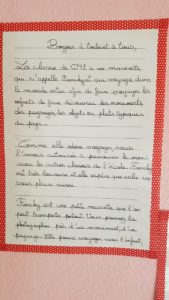 Bonjour à toutes et à tous,
La classe de CM1 a une mascotte
qui s'appelle Francky et qui voyage dans
le monde entier afin de faire voyager les
enfants de faire découvrir des monuments
des paysages des objets ou plats typiques
du pays...
Comme elle adore voyager, nous
l'avons autorisée à parcourir le monde
avec les autres classes de l'école. Francky
est très heureuse et elle espère que cela
vous plaira aussi.
Francky est une petite mascotte que l'on
peut transporter partout. Vous pouvez la
photographier près d'un monument, d'un
paysage. Elle pourra voyager avec l'enfant,